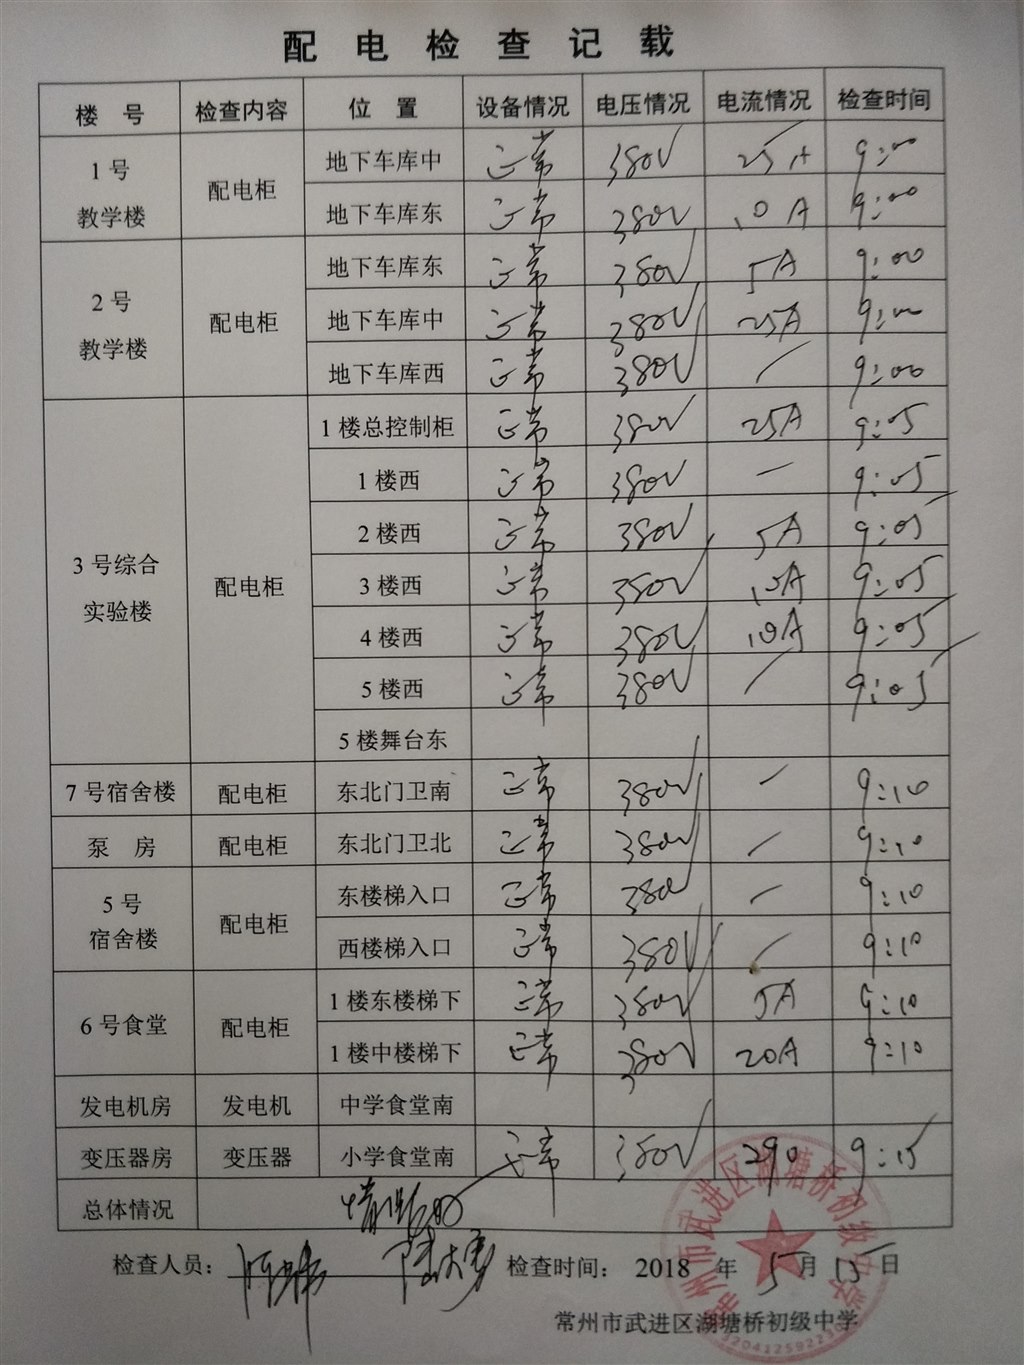 配电检查记载
楼号 检查内容 位置 设备情况 电压情况 电流情况 检查时间
1号教学楼 配电柜 地下车库中 正常 380V 25A 9:00
地下车库东 正常 380V 10A 9:00
2号教学楼 配电柜 地下车库东 正常 380V 5A 9:00
地下车库中 正常 380V 25A 9:00
地下车库西 正常 380V / 9:00
3号综合实验楼 配电柜 1楼总控制柜 正常 380V 25A 9:05
1楼西 正常 380V — 9:05
2楼西 正常 380V 5A 9:05
3楼西 正常 380V 10A 9:05
4楼西 正常 380V 10A 9:05
5楼西 正常 380V / 9:05
5楼舞台东
7号宿舍楼 配电柜 东北门卫南 正常 380V / 9:10
泵房 配电柜 东北门卫北 正常 380V / 9:10
5号宿舍楼 配电柜 东楼梯入口 正常 380V / 9:10
西楼梯入口 正常 380V / 9:10
6号食堂 配电柜 1楼东楼梯下 正常 380V 5A 9:10
1楼中楼梯下 正常 380V 20A 9:10
发电机房 发电机 中学食堂南
变压器房 变压器 小学食堂南 正常 380V 290 9:15
总体情况 情况良好
检查人员： 检查时间： 2018年5月15日
常州市武进区湖塘桥初级中学
常州市武进区湖塘桥初级中学